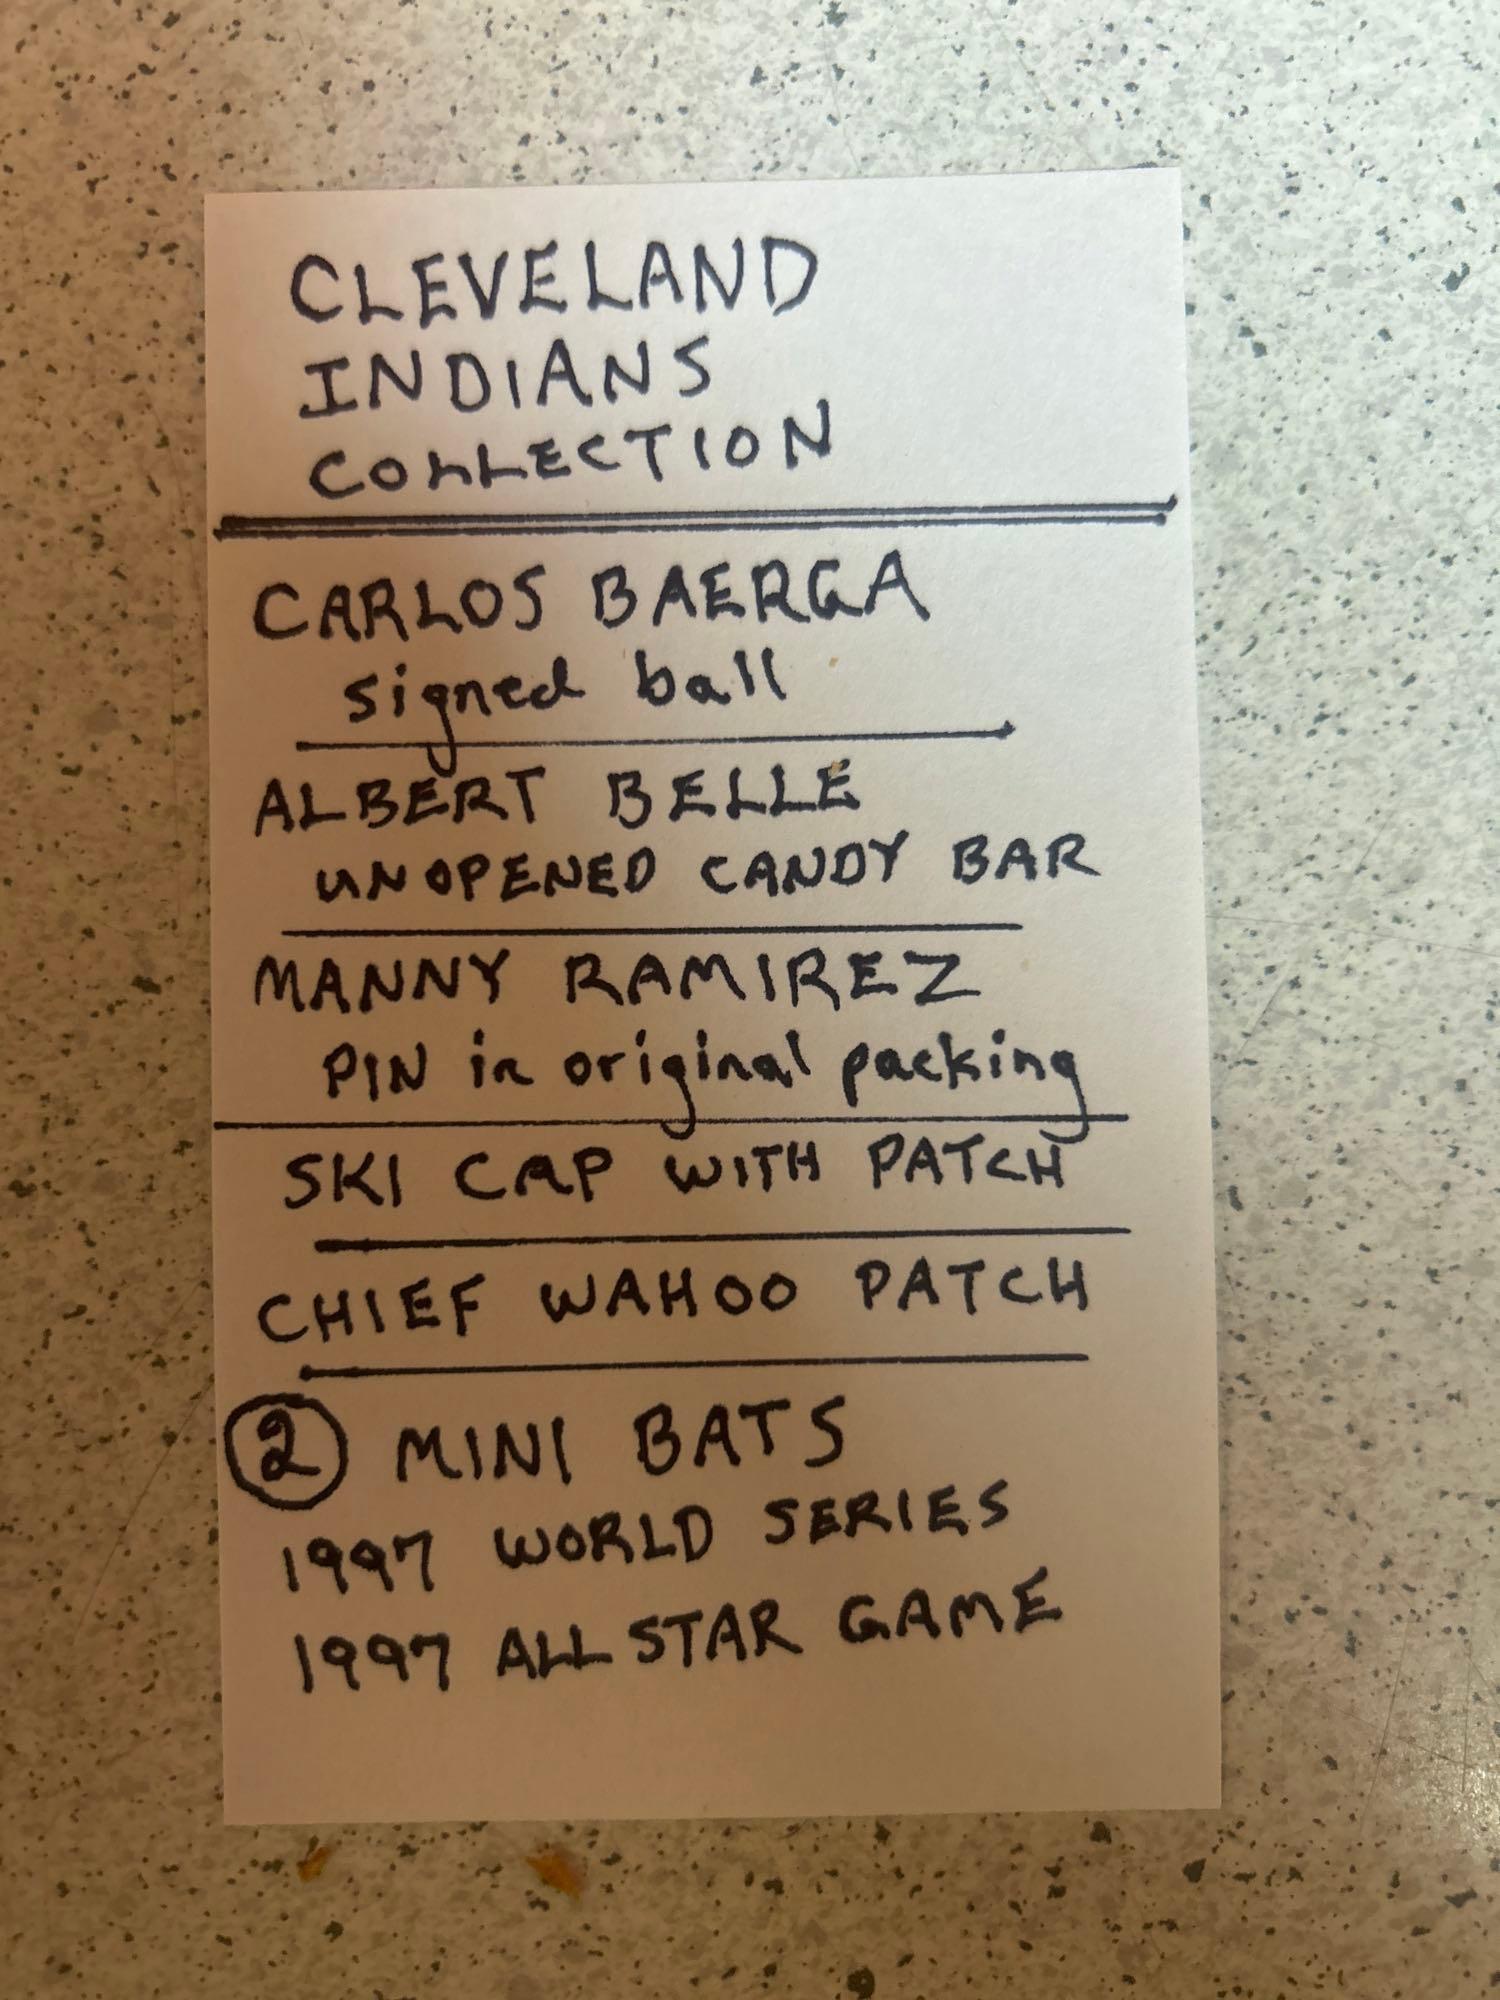 CLEVELAND
INDIANS
COLLECTION
CARLOS BAERGA
signed ball
ALBERT BELLE
UNOPENED CANDY BAR
MANNY RAMIREZ
PIN in original packing
SKI CAP WITH PATCH
CHIEF WAHOO PATCH
2 MINI BATS
1997 WORLD SERIES
1997 ALL STAR GAME